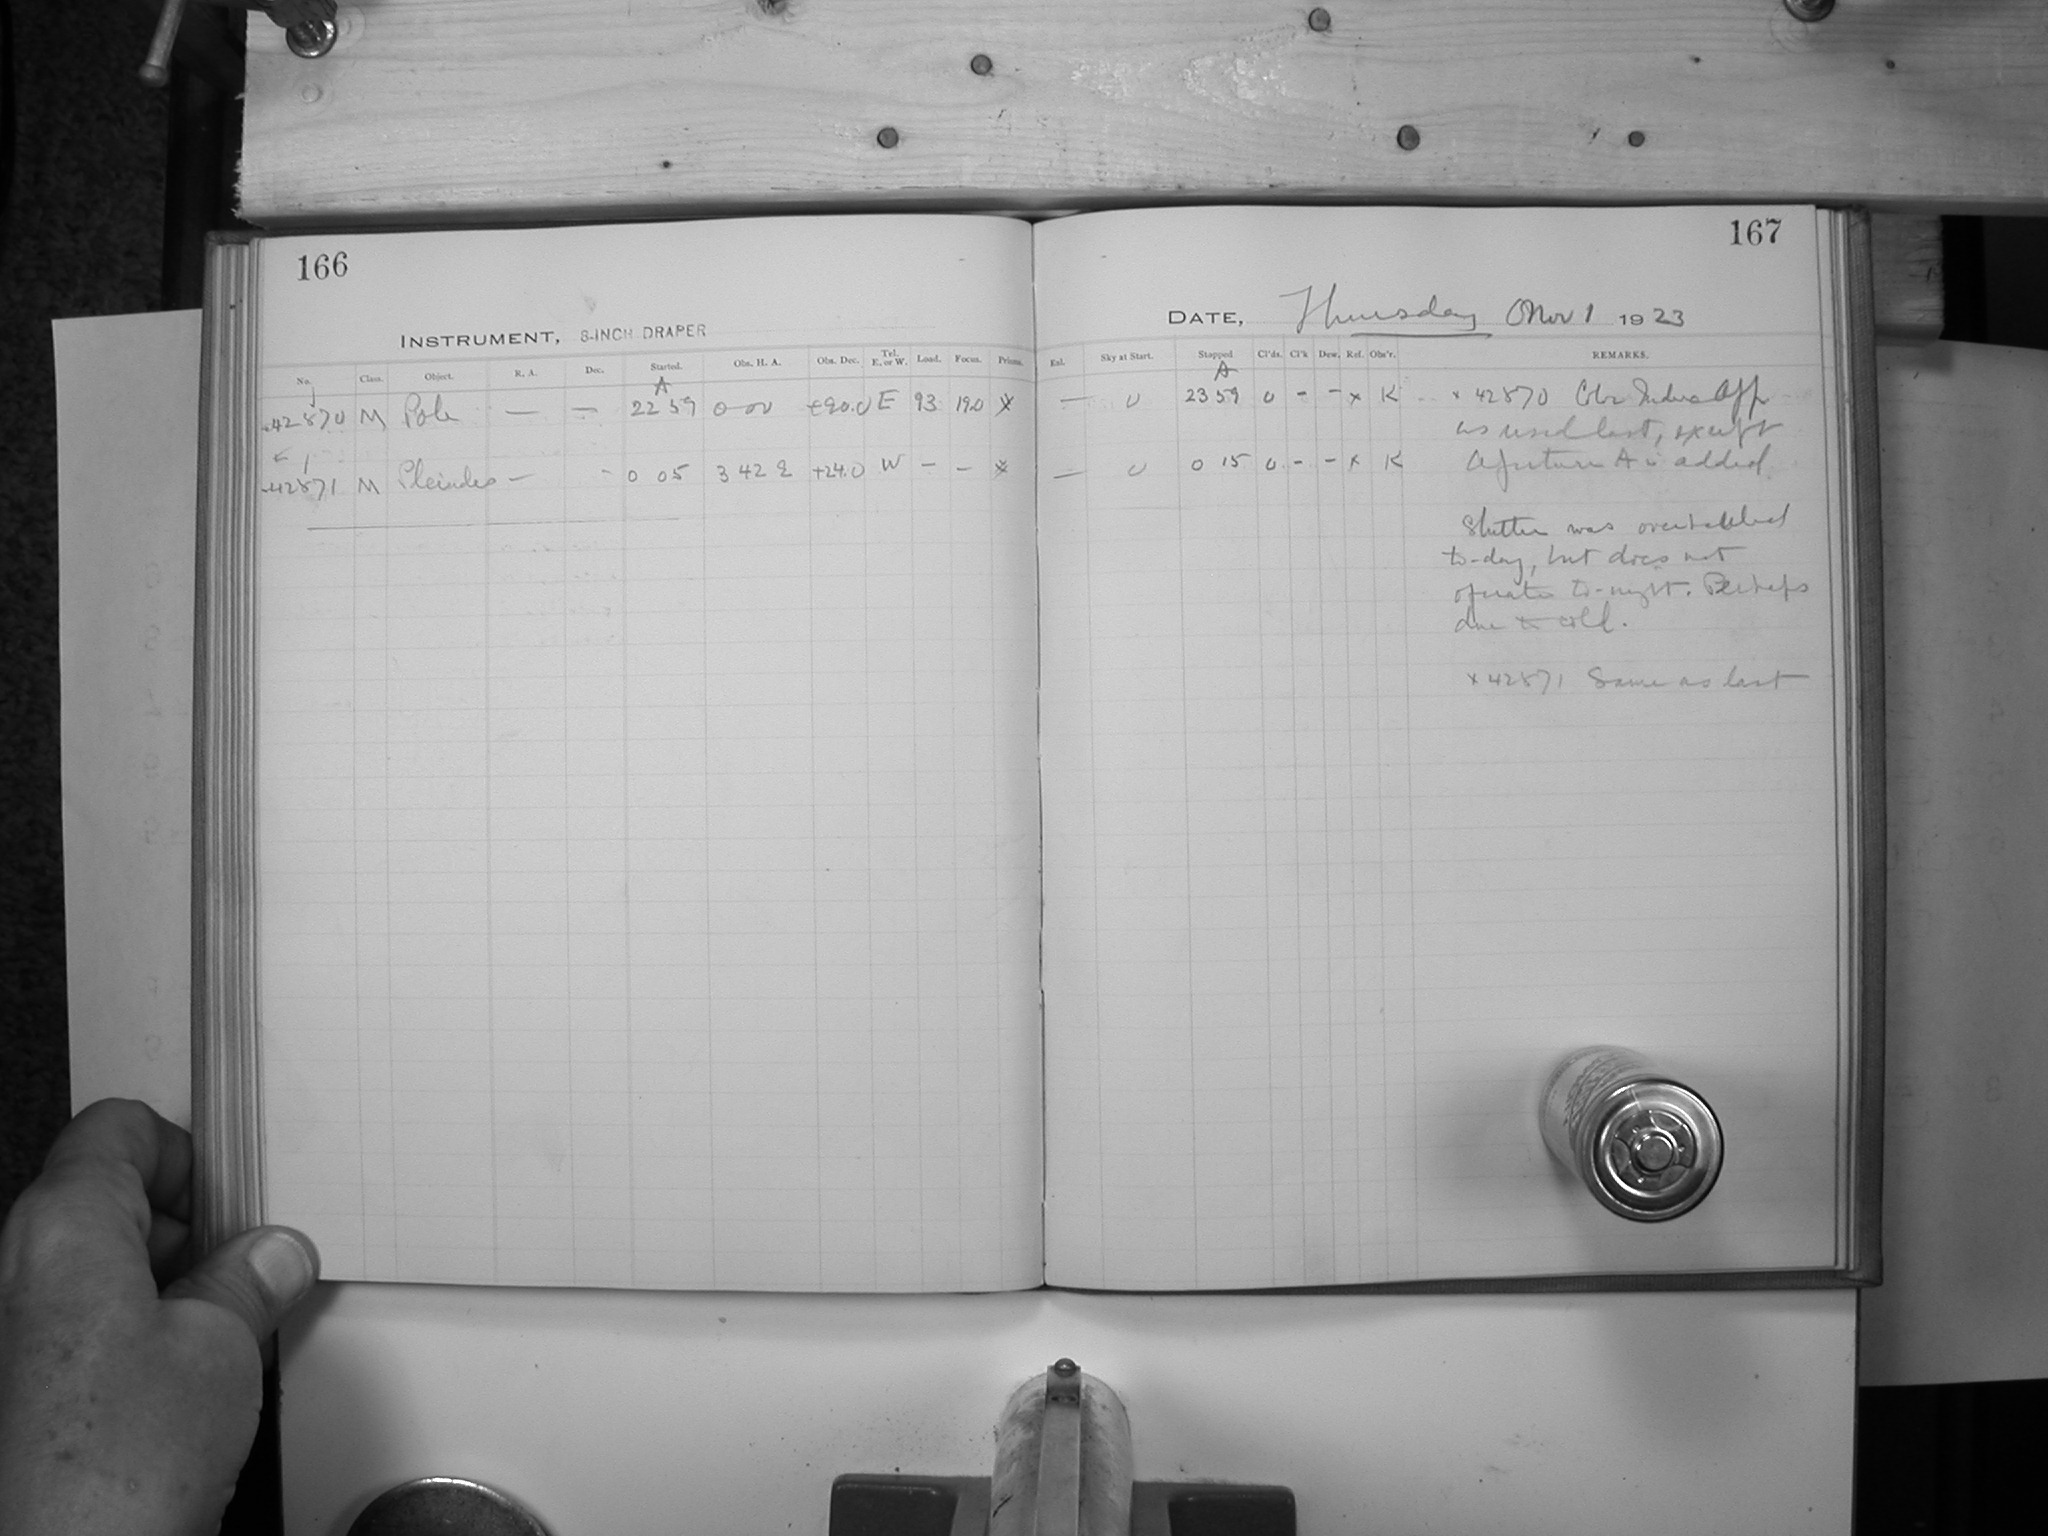 166
INSTRUMENT, 8-INCH DRAPER
No. Class. Object. R. A. Dec. Started. Obs. H. A. Obs. Dec. Tel. E. or W. Load. Focus. Prisms.
A
42870 M Pole — — 22 59 0 00 +90.0 E 93 19.0 x
42871 M Pleiades — - 0 05 3 42 +24.0 W - - x
167
DATE, Thursday Nov 1 1923
Exl. Sky at Start. Stopped Cl'ds. Cl'k Dew. Ref. Obs'r. REMARKS.
A
— 0 23 59 0 - - x K x 42870 Color Index App
as used last, except
— 0 0 15 0 - - x K Aperture A is added
Shutter was overhauled
to-day, but does not
operate to-night. Perhaps
due to cold.
x 42871 Same as last